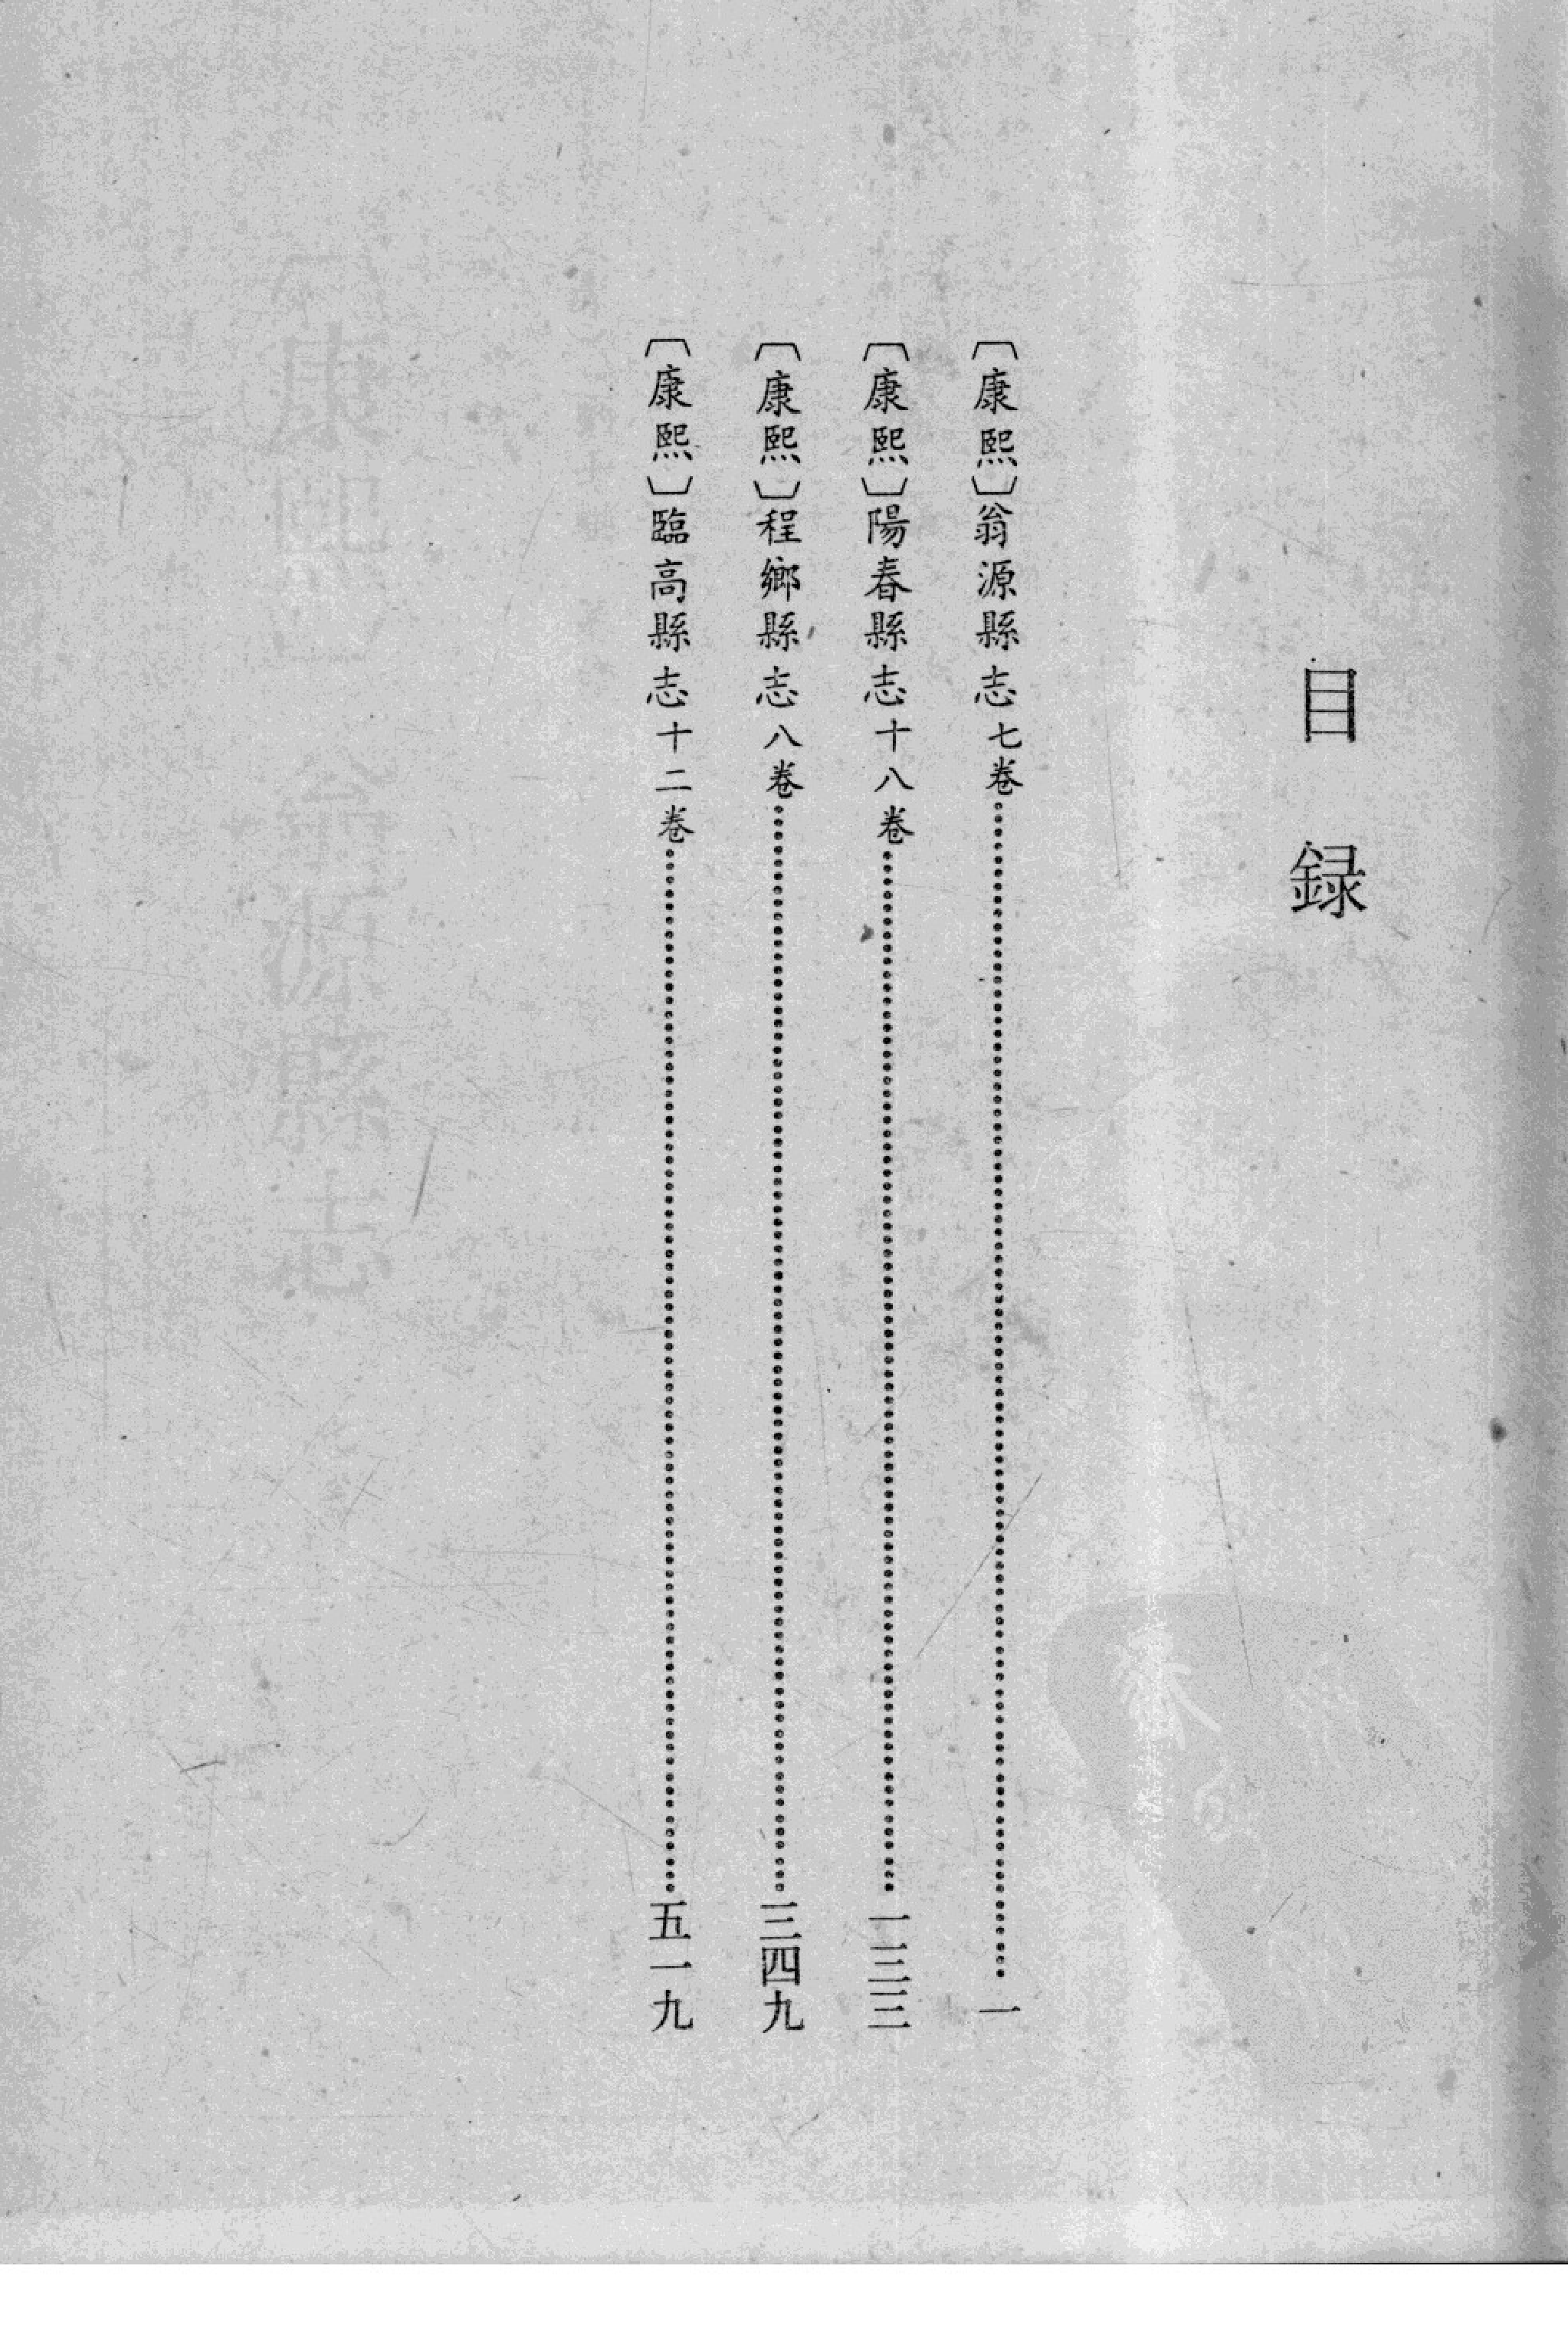 目録
〔康熙〕翁源縣志七卷……一
〔康熙〕陽春縣志十八卷……一三三
〔康熙〕程鄉縣志八卷……三四九
〔康熙〕臨高縣志十二卷……五一九